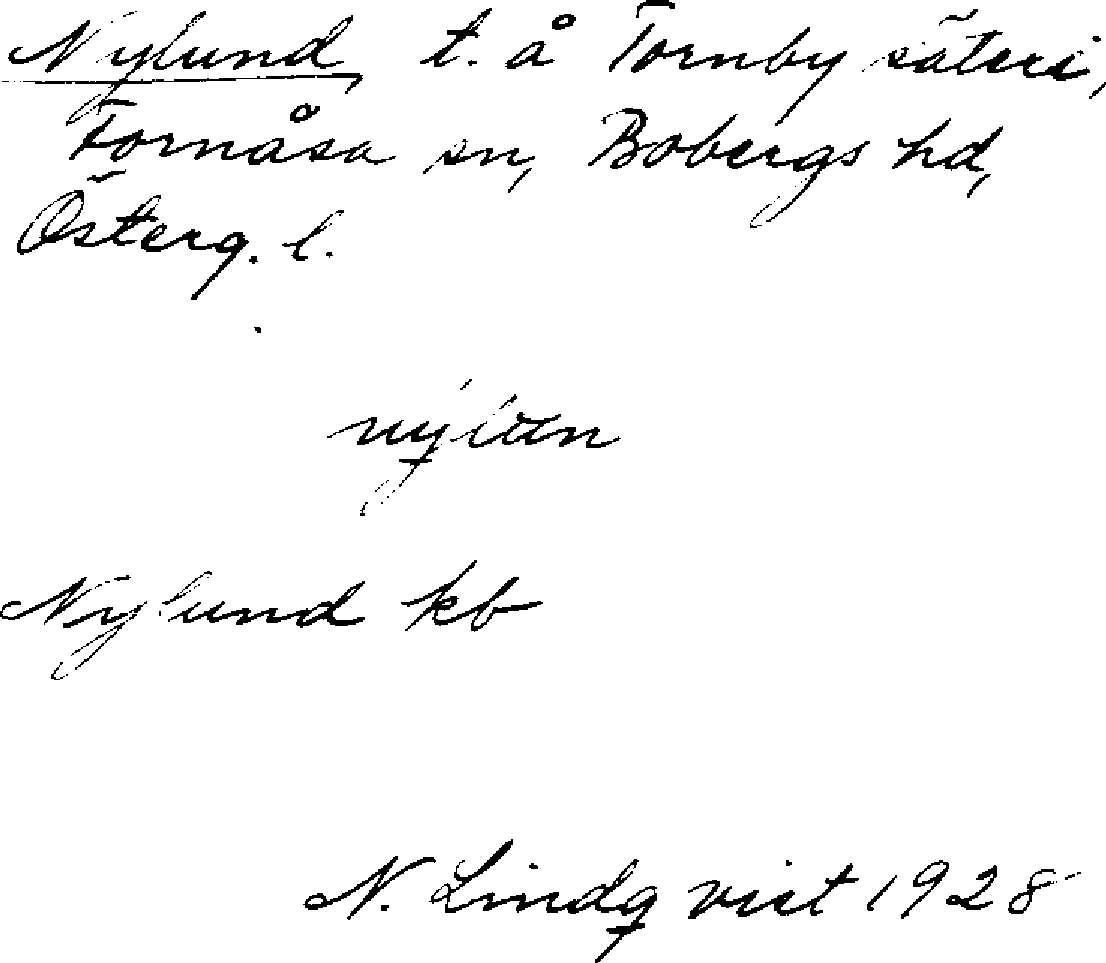 Nylund, t. å Tornby säteri,
Fornåsa sn, Bobergs hd,
Österg. l.
Nylund kb
N. Lindqvist 1928